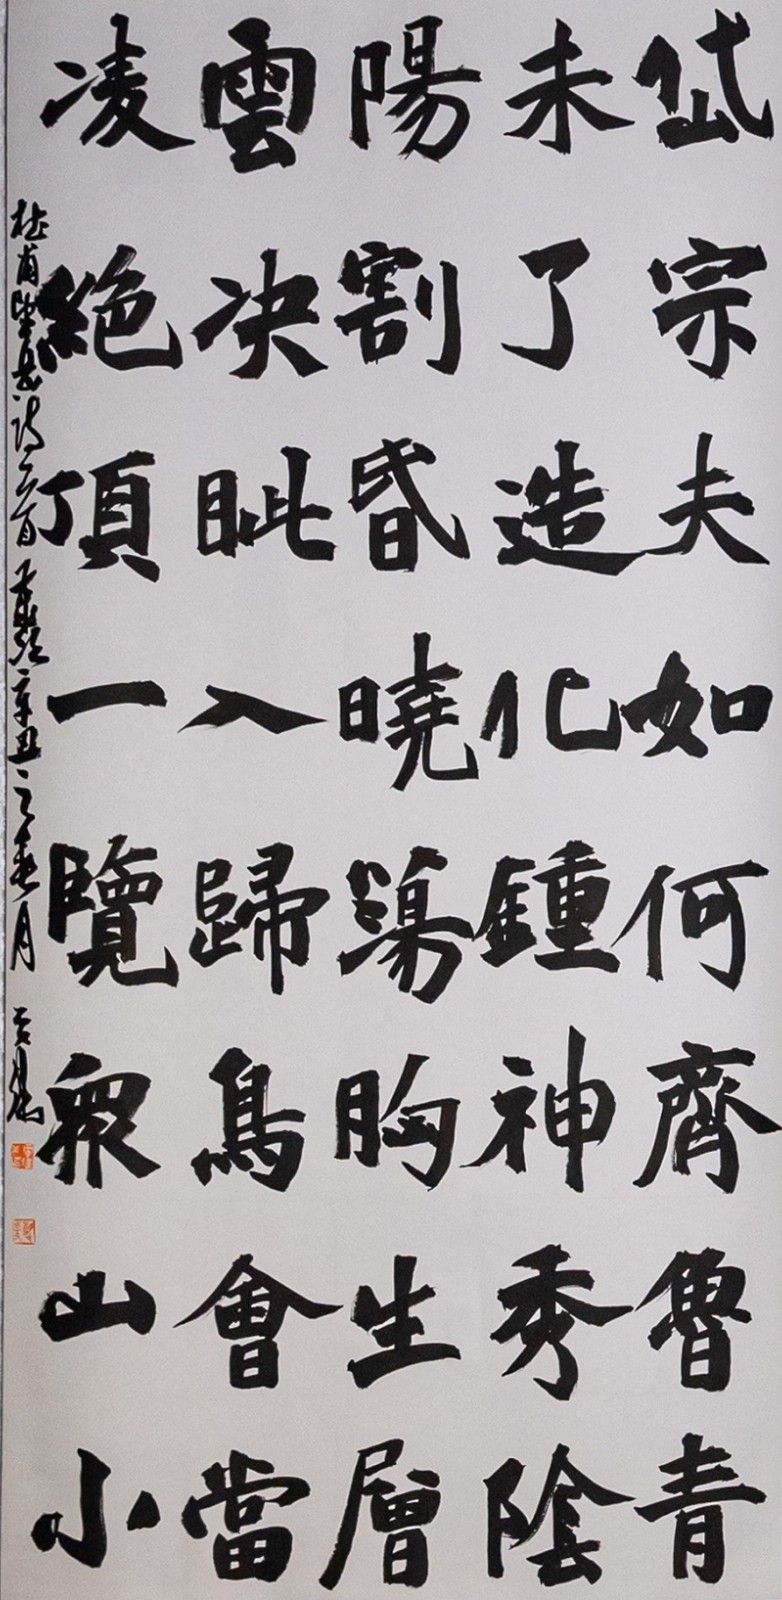 岱宗夫如何齊魯青
未了造化鍾神秀陰
陽割昏曉蕩胸生層
雲決眦入歸鳥會當
凌絕頂一覽眾山小
杜甫望岳詩一首 辛丑之春月